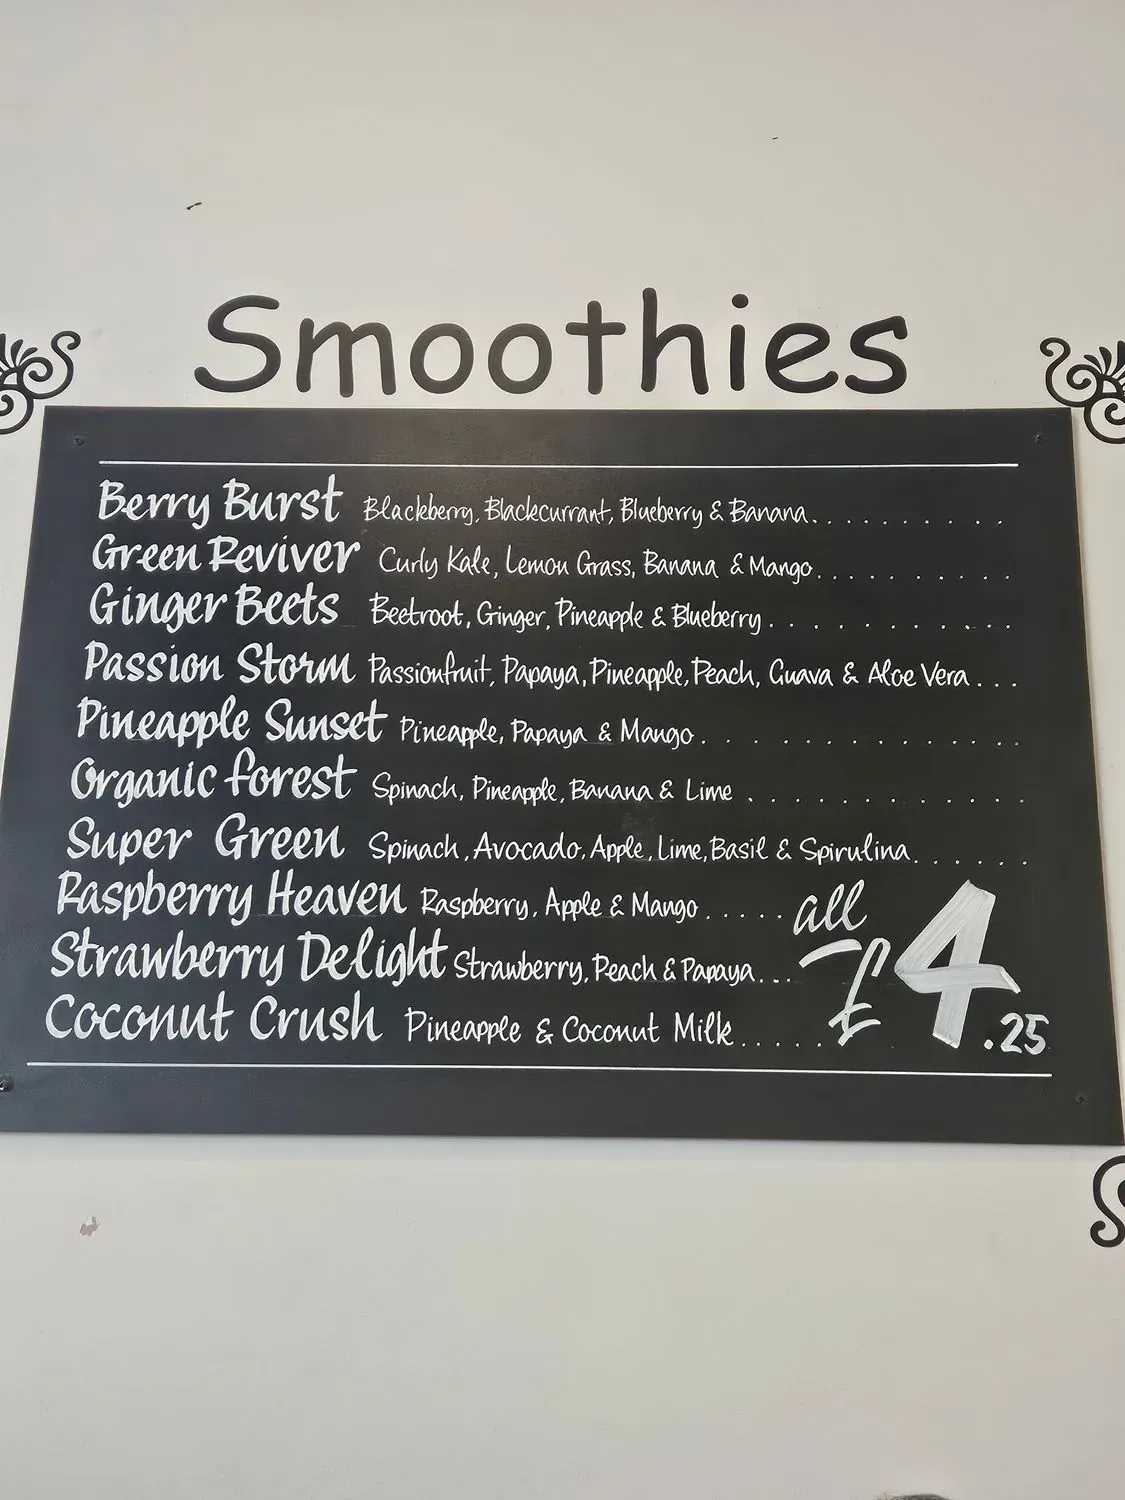 Smoothies
Berry Burst Blackberry, Blackcurrant, Blueberry & Banana..........
Green Reviver Curly Kale, Lemon Grass, Banana & Mango...........
Ginger Beets Beetroot, Ginger, Pineapple & Blueberry............
Passion Storm Passionfruit, Papaya, Pineapple, Peach, Guava & Aloe Vera...
Pineapple Sunset Pineapple, Papaya & Mango...............
Organic forest Spinach, Pineapple, Banana & Lime .............
Super Green Spinach, Avocado, Apple, Lime, Basil & Spirulina......
Raspberry Heaven Raspberry, Apple & Mango.....
Strawberry Delight Strawberry, Peach & Papaya...
Coconut Crush Pineapple & Coconut Milk......
all
£4.25